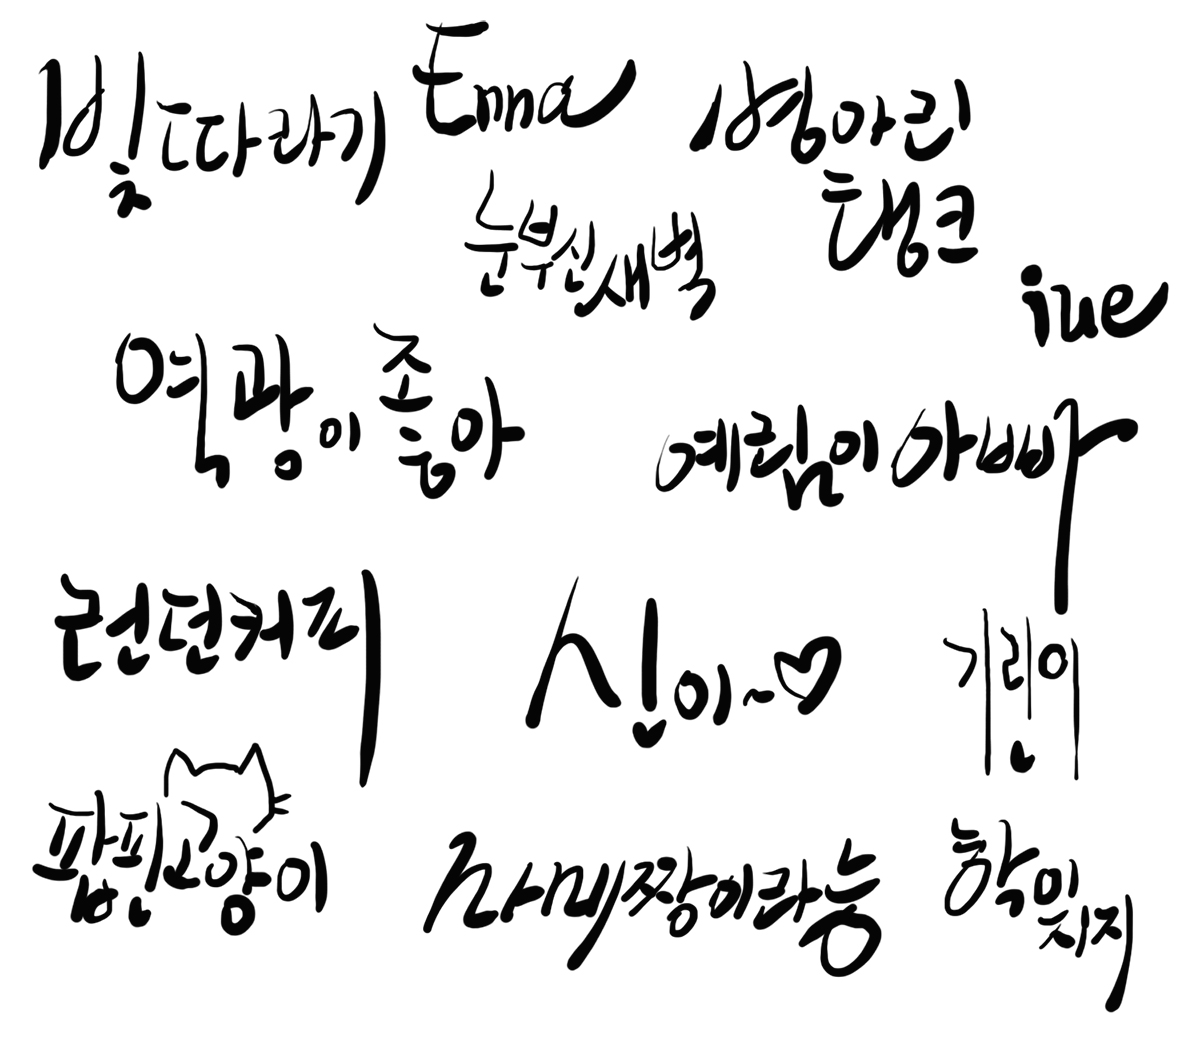 빛따라기
Enna
병아리
탱크
눈부신새벽
iue
역광이
좋아
예림이 아빠
런던커피
신이~♡
기린이
팝핀고양이
라떼짱이라능
학잊지